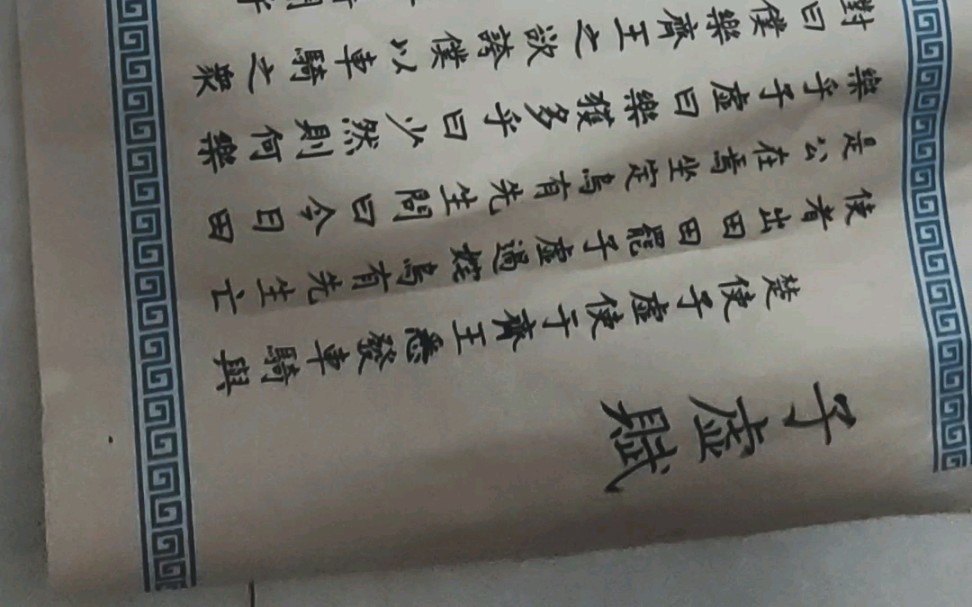 子虛賦
楚使子虛使于齊王悉發車騎與
使者出田田罷子虛過姹烏有先生亡
是公在焉坐定烏有先生問曰今日田
樂乎子虛曰樂獲多乎曰少然則何樂
對曰僕樂齊王之欲誇僕以車騎之衆